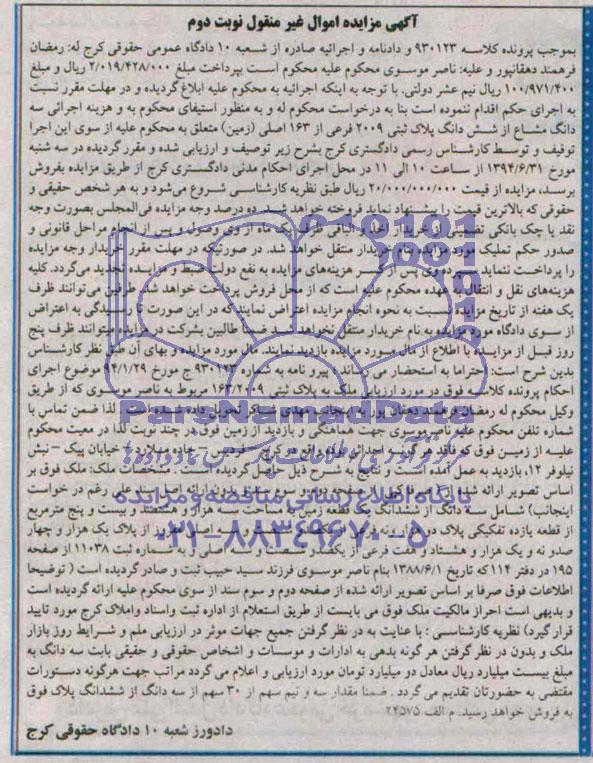 آگهی مزایده اموال غیر منقول نوبت دوم
بموجب پرونده کلاسه ۹۳۰۱۲۳ و دادنامه و اجرائیه صادره از شعبه ۱۰ دادگاه عمومی حقوقی کرج له: رمضان
فرهمند دهقانپور و علیه: ناصر موسوی محکوم علیه محکوم است بپرداخت مبلغ ۲/۰۱۹/۴۲۸/۰۰۰ ریال و مبلغ
۱۰۰/۹۷۱/۴۰۰ ریال نیم عشر دولتی. با توجه به اینکه اجرائیه به محکوم علیه ابلاغ گردیده و در مهلت مقرر نسبت
به اجرای حکم اقدام ننموده است بنا به درخواست محکوم له و به منظور استیفای محکوم به و هزینه اجرائی سه
دانگ مشاع از شش دانگ پلاک ثبتی ۲۰۰۹ فرعی از ۱۶۳ اصلی (زمین) متعلق به محکوم علیه از سوی این اجرا
توقیف و توسط کارشناس رسمی دادگستری کرج بشرح زیر توصیف و ارزیابی شده و مقرر گردیده در سه شنبه
مورخ ۱۳۹۴/۶/۳۱ از ساعت ۱۰ الی ۱۱ در محل اجرای احکام مدنی دادگستری کرج از طریق مزایده بفروش
برسد، مزایده از قیمت ۲۰/۰۰۰/۰۰۰/۰۰۰ ریال طبق نظریه کارشناسی شروع می‌شود و به هر شخص حقیقی و
حقوقی که بالاترین قیمت را پیشنهاد نماید فروخته خواهد شد. ده درصد وجه مزایده فی‌المجلس بصورت وجه
نقد یا چک بانکی تضمینی از خریدار اخذ و الباقی ظرف یک ماه از وی وصول و پس از انجام مراحل قانونی و
صدور حکم تملیک مورد مزایده بنام خریدار منتقل خواهد شد. در صورتیکه در مهلت مقرر خریدار وجه مزایده
را پرداخت ننماید سپرده وی پس از کسر هزینه‌های مزایده به نفع دولت ضبط و مزایده تجدید می‌گردد. کلیه
هزینه‌های نقل و انتقال به عهده محکوم علیه است که از محل فروش پرداخت خواهد شد طرفین می‌توانند ظرف
یک هفته از تاریخ مزایده نسبت به نحوه انجام مزایده اعتراض نمایند که در این صورت تا رسیدگی به اعتراض
از سوی دادگاه مورد مزایده به نام خریدار منتقل نخواهد شد ضمناً طالبین بشرکت در مزایده میتوانند ظرف پنج
روز قبل از مزایده با اطلاع از مال مورد مزایده بازدید نمایند. مال مورد مزایده و بهای آن طبق نظر کارشناس
بدین شرح است: احتراما به استحضار می رساند پیرو نامه به شماره ۹۳۰۱۲۳ ج مورخ ۹۴/۱/۲۹ موضوع اجرای
احکام پرونده کلاسه فوق در مورد ارزیابی ملک به پلاک ثبتی ۱۶۳/۲۰۰۹ مربوط به ناصر موسوی که از طریق
وکیل محکوم له رمضان فرهمند دهقان پور به اینجانب مهدی شاکر تحویل داده شده است. لذا ضمن تماس با
شماره تلفن محکوم علیه ناصر موسوی جهت هماهنگی و بازدید از زمین فوق در چند نوبت لذا در معیت محکوم
علیه از زمین فوق که فاقد هر گونه اعیانی بوده واقع در کرج - فردیس - جاده ملارد - خیابان پیک - نبش
نیلوفر ۱۲، بازدید به عمل آمده است و نتایج به شرح ذیل حاصل گردیده است. ۱- مشخصات ملک: ملک فوق بر
اساس تصویر ارائه شده دوم و سوم سند علی رغم در خواست
اینجانب) شامل سه دانگ از ششدانگ یک قطعه زمین به مساحت سه هزار و هشتصد و بیست و پنج مترمربع
از قطعه یازده تفکیکی پلاک دو هزار و نه فرعی از یکصد و شصت و سه اصلی مفروز از پلاک یک هزار و چهار
صد و نه و یک هزار و هشتاد و هفت فرعی از یکصد و شصت و سه اصلی و به شماره ثبت ۱۱۰۳۸ از صفحه
۱۹۵ در دفتر ۱۱۴ که تاریخ ۱۳۸۸/۶/۱ بنام ناصر موسوی فرزند سید حبیب ثبت و صادر گردیده است ( توضیحا
اطلاعات فوق صرفا بر اساس تصویر ارائه شده از صفحه دوم و سوم سند از سوی محکوم علیه ارائه گردیده است
و بدیهی است احراز مالکیت ملک فوق می بایست از طریق استعلام از اداره ثبت واسناد واملاک کرج مورد تایید
قرار گیرد) نظریه کارشناسی : با عنایت به در نظر گرفتن جمیع جهات موثر در ارزیابی ملم و شرایط روز بازار
ملک و بدون در نظر گرفتن هر گونه بدهی به ادارات و موسسات و اشخاص حقوقی و حقیقی بابت سه دانگ به
مبلغ بیست میلیارد ریال معادل دو میلیارد تومان مورد ارزیابی و اعلام می گردد مراتب جهت هرگونه دستورات
مقتضی به حضورتان تقدیم می گردد . ضمنا مقدار سه و نیم سهم از ۳۰ سهم از سه دانگ از ششدانگ پلاک فوق
به فروش خواهد رسید. م الف ۲۴۵۷۵
دادورز شعبه ۱۰ دادگاه حقوقی کرج
ParsNamadData
پایگاه اطلاع رسانی مناقصه و مزایده
۰۲۱-۸۸۳۴۹۶۷۰-۵